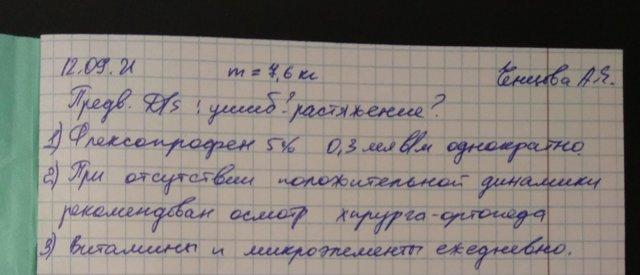 12.09.21 m = 7,6 кг Ченцова А.Я.
Предв. DS: ушиб? растяжение?
1) Флексопрофен 5% 0,3 мл в/м однократно.
2) При отсутствии положительной динамики
рекомендован осмотр хирурга-ортопеда
3) Витамины и микроэлементы ежедневно.